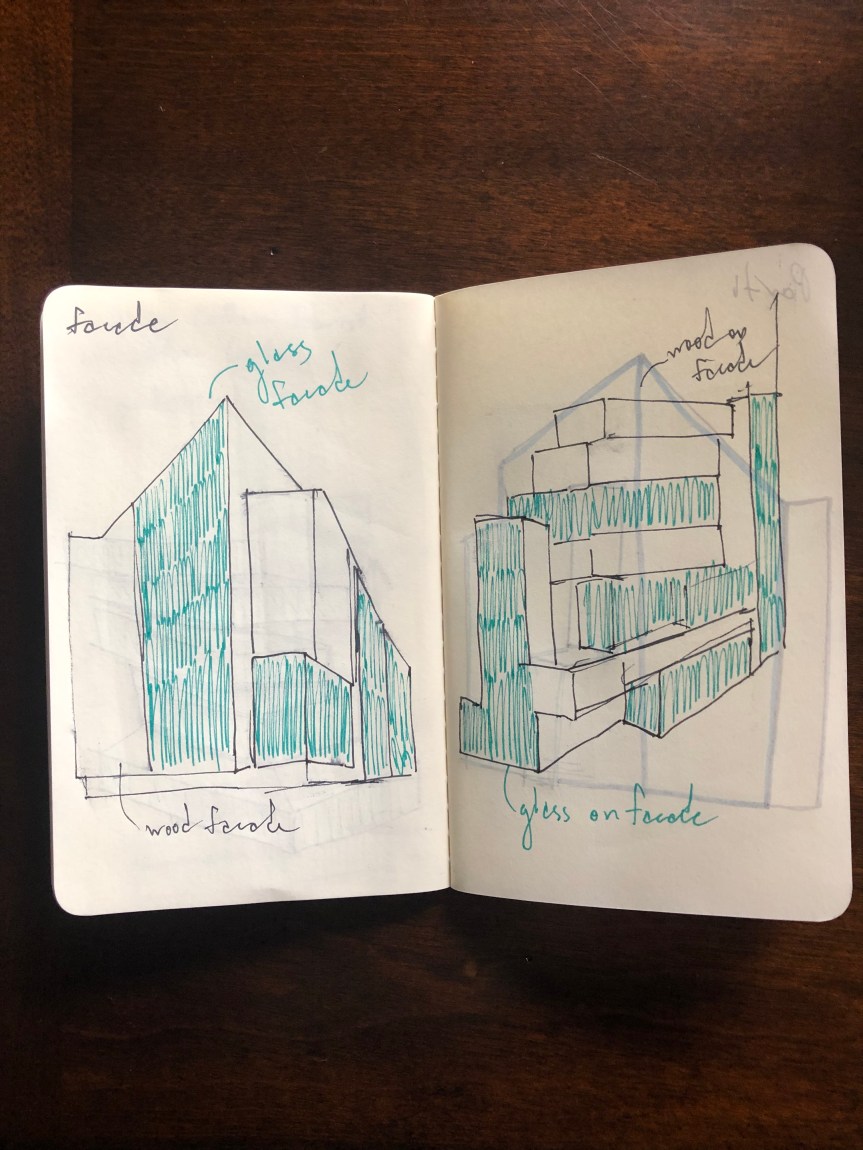 facade
glass
facade
wood facade
wood on
facade
glass on facade